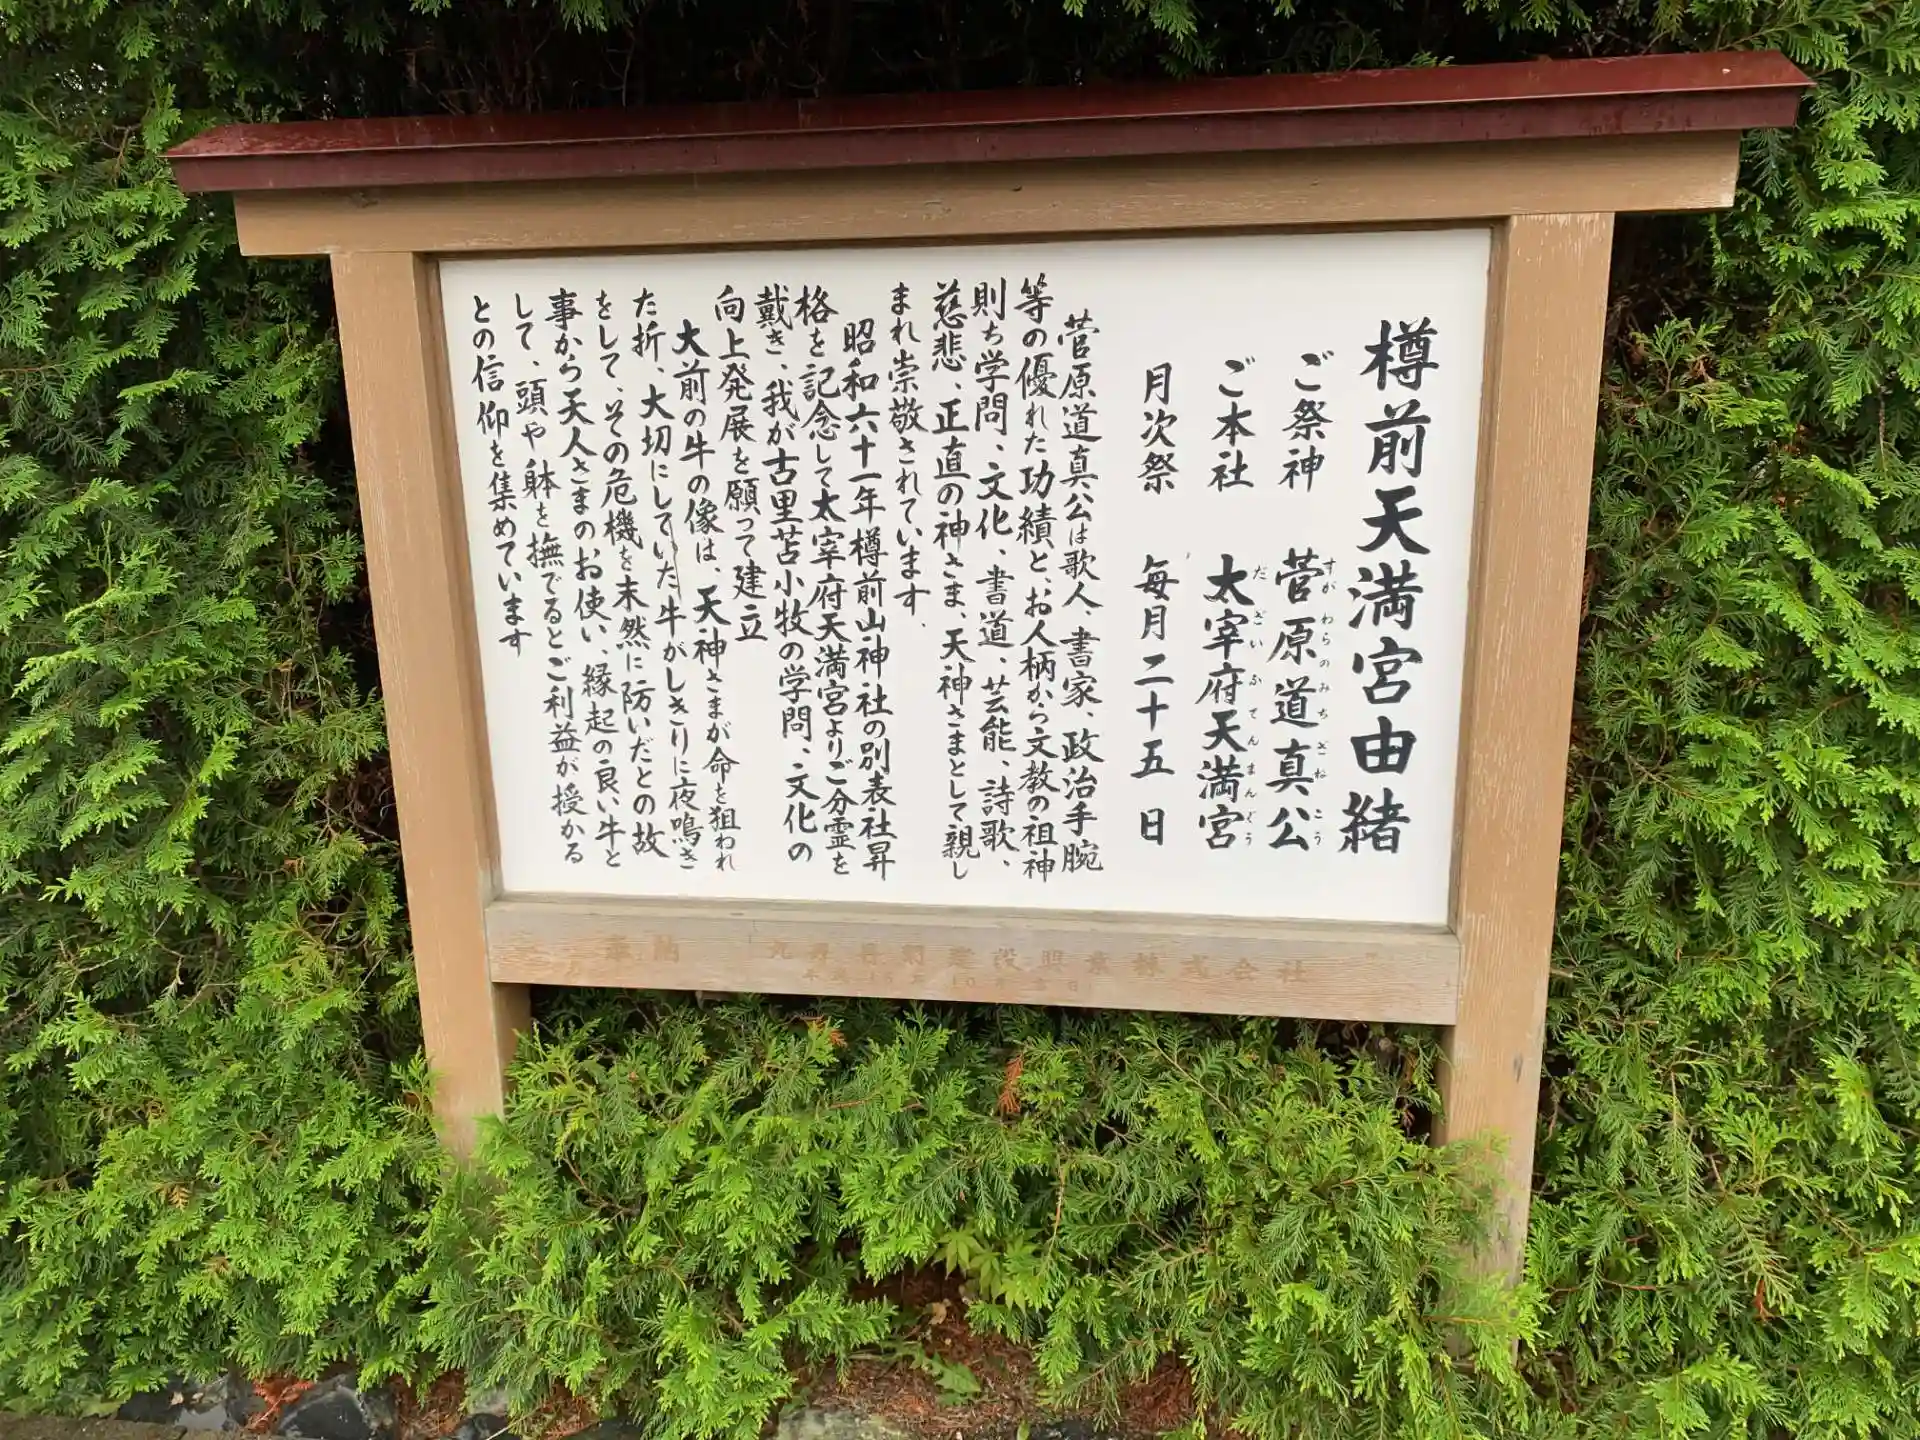 樽前天満宮由緒
ご祭神 菅原道真公
すがわらのみちざねこう
ご本社 太宰府天満宮
だざいふてんまんぐう
月次祭 毎月二十五日
菅原道真公は歌人、書家、政治手腕
等の優れた功績と、お人柄から文教の祖神
則ち学問、文化、書道、芸能、詩歌、
慈悲、正直の神さま、天神さまとして親し
まれ崇敬されています。
昭和六十一年樽前山神社の別表社昇
格を記念して太宰府天満宮よりご分霊を
戴き、我が古里苫小牧の学問、文化の
向上発展を願って建立
大前の牛の像は、天神さまが命を狙われ
た折、大切にしていた牛がしきりに夜鳴き
をして、その危機を未然に防いだとの故
事から天人さまのお使い、縁起の良い牛と
して、頭や躰を撫でるとご利益が授かる
との信仰を集めています
奉納 株式会社